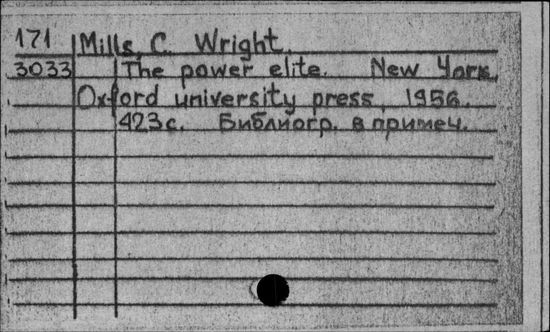 171 Mills C. Wright.
3033 The power elite. New York,
Oxford university press, 1956.
423с. Библиогр. в примеч.